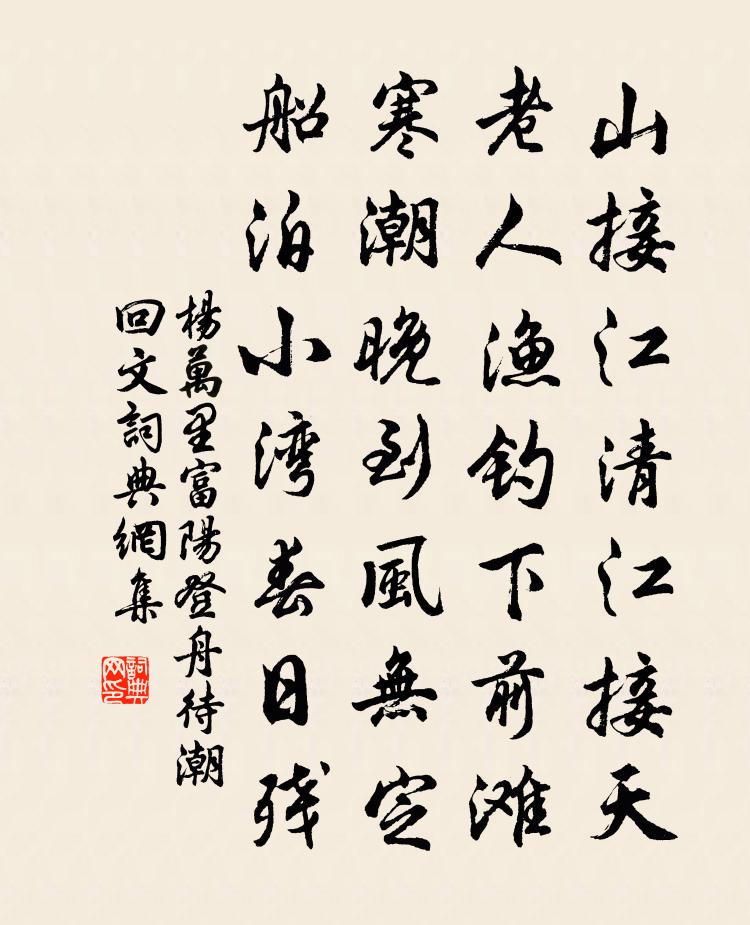 山接江清江接天
老人渔钓下前滩
寒潮晚到風無定
船泊小湾春日残
楊萬里富陽登舟待潮
回文詞典網集
詞典网印